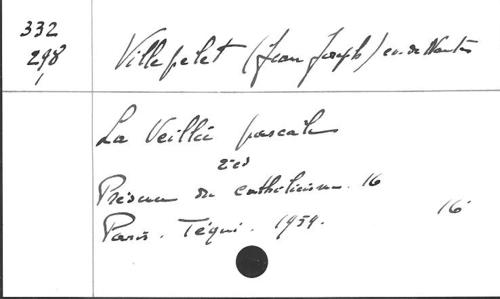 332
298
Villepelet (Jean Joseph) ev. de Nantes
La Veillée pascale
2 ed
Présence du catholicisme. 16
Paris. Téqui. 1959.
16